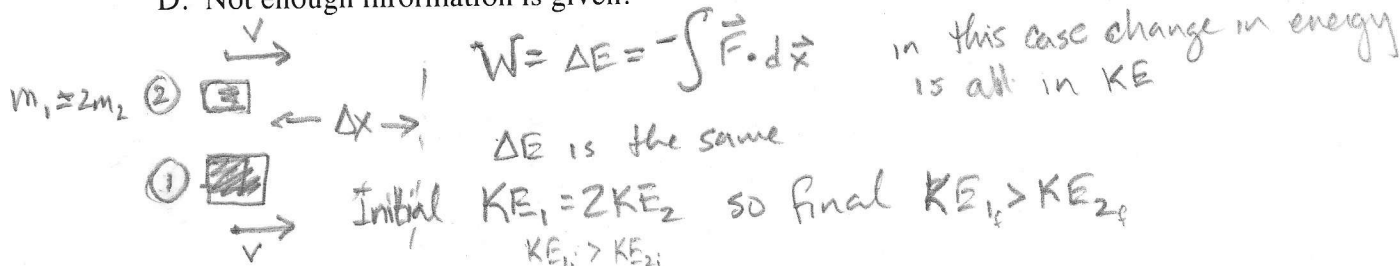 D. Not enough information is given.
V
W = ΔE = -∫ F⃗ · dx⃗
in this case change in energy
is all in KE
m₁ = 2m₂ ②
← Δx →
ΔE is the same
①
Initial KE₁ = 2KE₂ so final KE₁f > KE₂f
V
KE₁i > KE₂i